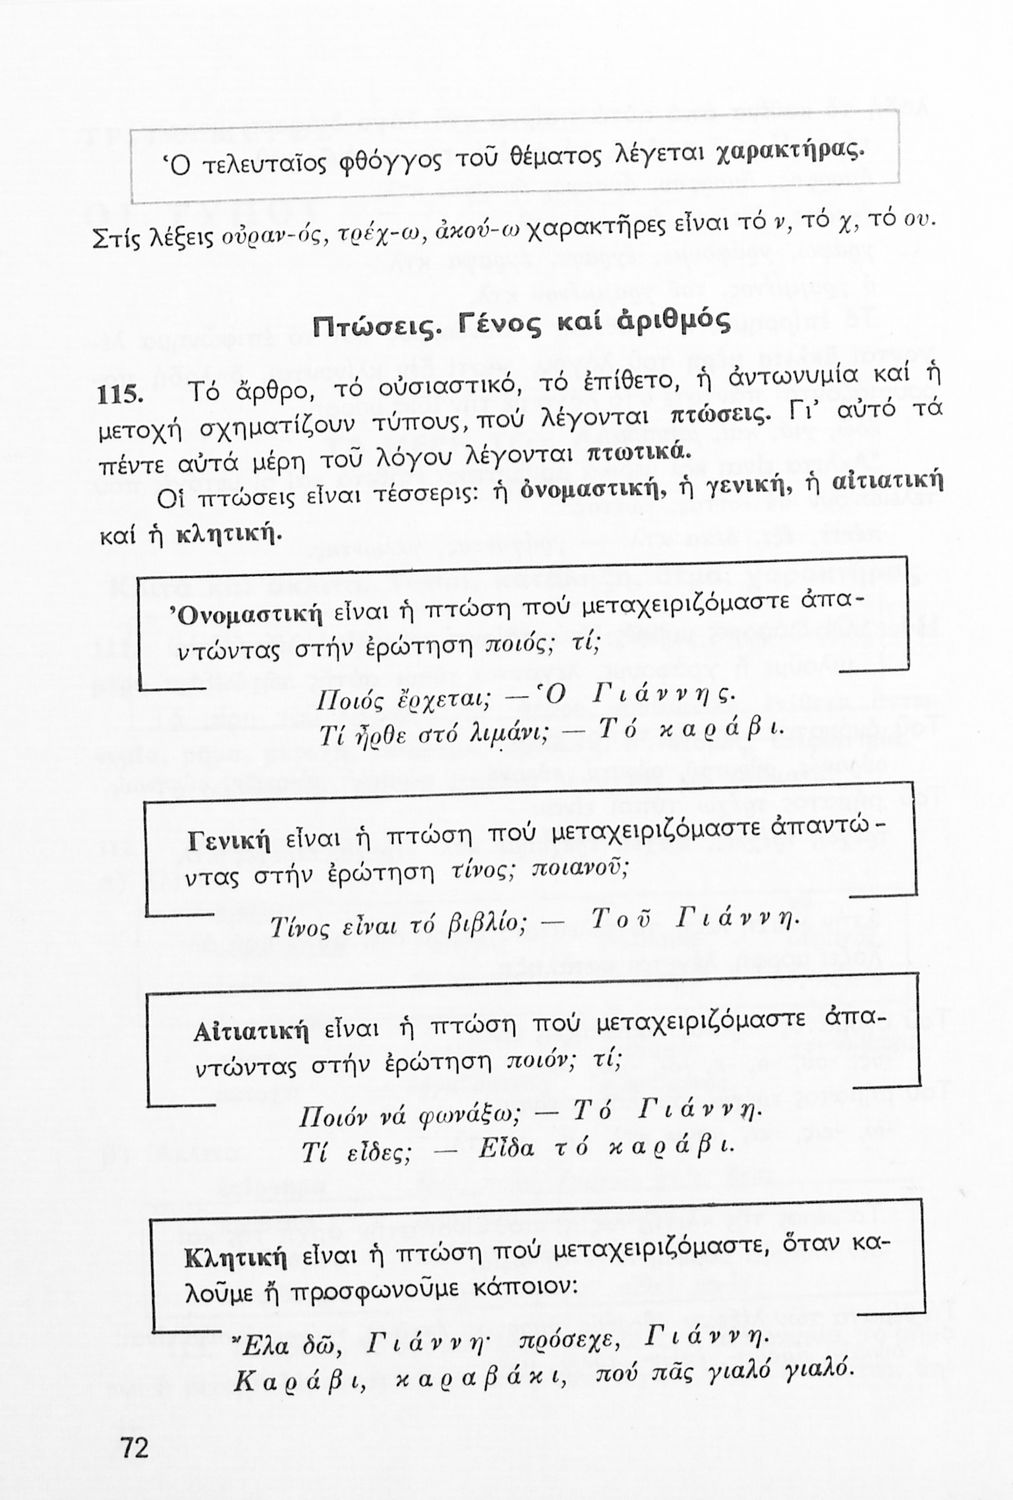 Ὁ τελευταῖος φθόγγος τοῦ θέματος λέγεται χαρακτήρας.
Στίς λέξεις οὐραν-ός, τρέχ-ω, ἀκού-ω χαρακτῆρες εἶναι τό ν, τό χ, τό ου.
Πτώσεις. Γένος καί ἀριθμός
115. Τό ἄρθρο, τό οὐσιαστικό, τό ἐπίθετο, ἡ ἀντωνυμία καί ἡ
μετοχή σχηματίζουν τύπους, πού λέγονται πτώσεις. Γι’ αὐτό τά
πέντε αὐτά μέρη τοῦ λόγου λέγονται πτωτικά.
Οἱ πτώσεις εἶναι τέσσερις: ἡ ὀνομαστική, ἡ γενική, ἡ αἰτιατική
καί ἡ κλητική.
Ὀνομαστική εἶναι ἡ πτώση πού μεταχειριζόμαστε ἀπα-
ντώντας στήν ἐρώτηση ποιός; τί;
Ποιός ἔρχεται; — Ὁ Γιάννης.
Τί ἦρθε στό λιμάνι; — Τό καράβι.
Γενική εἶναι ἡ πτώση πού μεταχειριζόμαστε ἀπαντώ-
ντας στήν ἐρώτηση τίνος; ποιανοῦ;
Τίνος εἶναι τό βιβλίο; — Τοῦ Γιάννη.
Αἰτιατική εἶναι ἡ πτώση πού μεταχειριζόμαστε ἀπα-
ντώντας στήν ἐρώτηση ποιόν; τί;
Ποιόν νά φωνάξω; — Τό Γιάννη.
Τί εἶδες; — Εἶδα τό καράβι.
Κλητική εἶναι ἡ πτώση πού μεταχειριζόμαστε, ὅταν κα-
λοῦμε ἤ προσφωνοῦμε κάποιον:
Ἔλα δῶ, Γιάννη· πρόσεχε, Γιάννη.
Καράβι, καραβάκι, πού πᾶς γιαλό γιαλό.
72